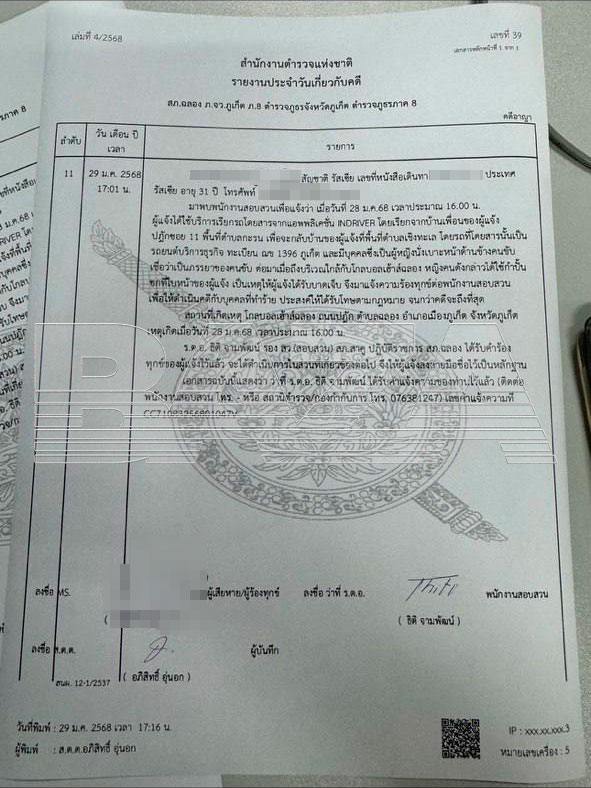 เล่มที่ 4/2568
เลขที่ 39
เอกสารหลักหน้าที่ 1 จาก 1
สำนักงานตำรวจแห่งชาติ
รายงานประจำวันเกี่ยวกับคดี
สภ.ฉลอง ภ.จว.ภูเก็ต ภ.8 ตำรวจภูธรจังหวัดภูเก็ต ตำรวจภูธรภาค 8
คดีอาญา
ลำดับ
วัน เดือน ปี
เวลา
รายการ
11
29 ม.ค. 2568
17:01 น.
สัญชาติ รัสเซีย เลขที่หนังสือเดินทาง ประเทศ
รัสเซีย อายุ 31 ปี โทรศัพท์
มาพบพนักงานสอบสวนเพื่อแจ้งว่า เมื่อวันที่ 28 ม.ค.68 เวลาประมาณ 16.00 น.
ผู้แจ้งได้ใช้บริการเรียกรถโดยสารจากแอพพลิเคชั่น INDRIVER โดยเรียกจากบ้านเพื่อนของผู้แจ้ง
ปฏักซอย 11 พื้นที่ตำบลกะรน เพื่อจะกลับบ้านของผู้แจ้งที่พื้นที่ตำบลเชิงทะเล โดยรถที่โดยสารนั้นเป็น
รถยนต์บริการธุรกิจ ทะเบียน ณข 1396 ภูเก็ต และมีบุคคลซึ่งเป็นผู้หญิงนั่งเบาะหน้าด้านข้างคนขับ
เชื่อว่าเป็นภรรยาของคนขับ ต่อมาเมื่อถึงบริเวณใกล้กับโกลบอลเฮ้าส์ฉลอง หญิงคนดังกล่าวได้ใช้กำปั้น
ชกที่ใบหน้าของผู้แจ้ง เป็นเหตุให้ผู้แจ้งได้รับบาดเจ็บ จึงมาแจ้งความร้องทุกข์ต่อพนักงานสอบสวน
เพื่อให้ดำเนินคดีกับบุคคลที่ทำร้าย ประสงค์ให้ได้รับโทษตามกฎหมาย จนกว่าคดีจะถึงที่สุด
สถานที่เกิดเหตุ โกลบอลเฮ้าส์ฉลอง ถนนปฏัก ตำบลฉลอง อำเภอเมืองภูเก็ต จังหวัดภูเก็ต
เหตุเกิดเมื่อวันที่ 28 ม.ค.68 เวลาประมาณ 16.00 น.
ร.ต.อ. ธิติ จามพัฒน์ รอง สว.(สอบสวน) สภ.สาคู ปฏิบัติราชการ สภ.ฉลอง ได้รับคำร้อง
ทุกข์ของผู้แจ้งไว้แล้ว จะได้ดำเนินการในส่วนที่เกี่ยวข้องต่อไป จึงให้ผู้แจ้งลงลายมือชื่อไว้เป็นหลักฐาน
เอกสารฉบับนี้แสดงว่า ว่าที่ ร.ต.อ. ธิติ จามพัฒน์ ได้รับคำแจ้งความของท่านไว้แล้ว (ติดต่อ
พนักงานสอบสวน โทร. - หรือ สถานีตำรวจ/กองกำกับการ โทร. 076381247) เลขคำแจ้งความที่
ลงชื่อ MS. ผู้เสียหาย/ผู้ร้องทุกข์
ลงชื่อ ว่าที่ ร.ต.อ. Thiti พนักงานสอบสวน
( ธิติ จามพัฒน์ )
ลงชื่อ ส.ต.ต. ผู้บันทึก
( อภิสิทธิ์ อุ่นอก )
สนผ. 12-1/2537
วันที่พิมพ์ : 29 ม.ค. 2568 เวลา 17:16 น.
IP : xxx.xx.xxx.3
ผู้พิมพ์ : ส.ต.ต.อภิสิทธิ์ อุ่นอก
หมายเลขเครื่อง : 5